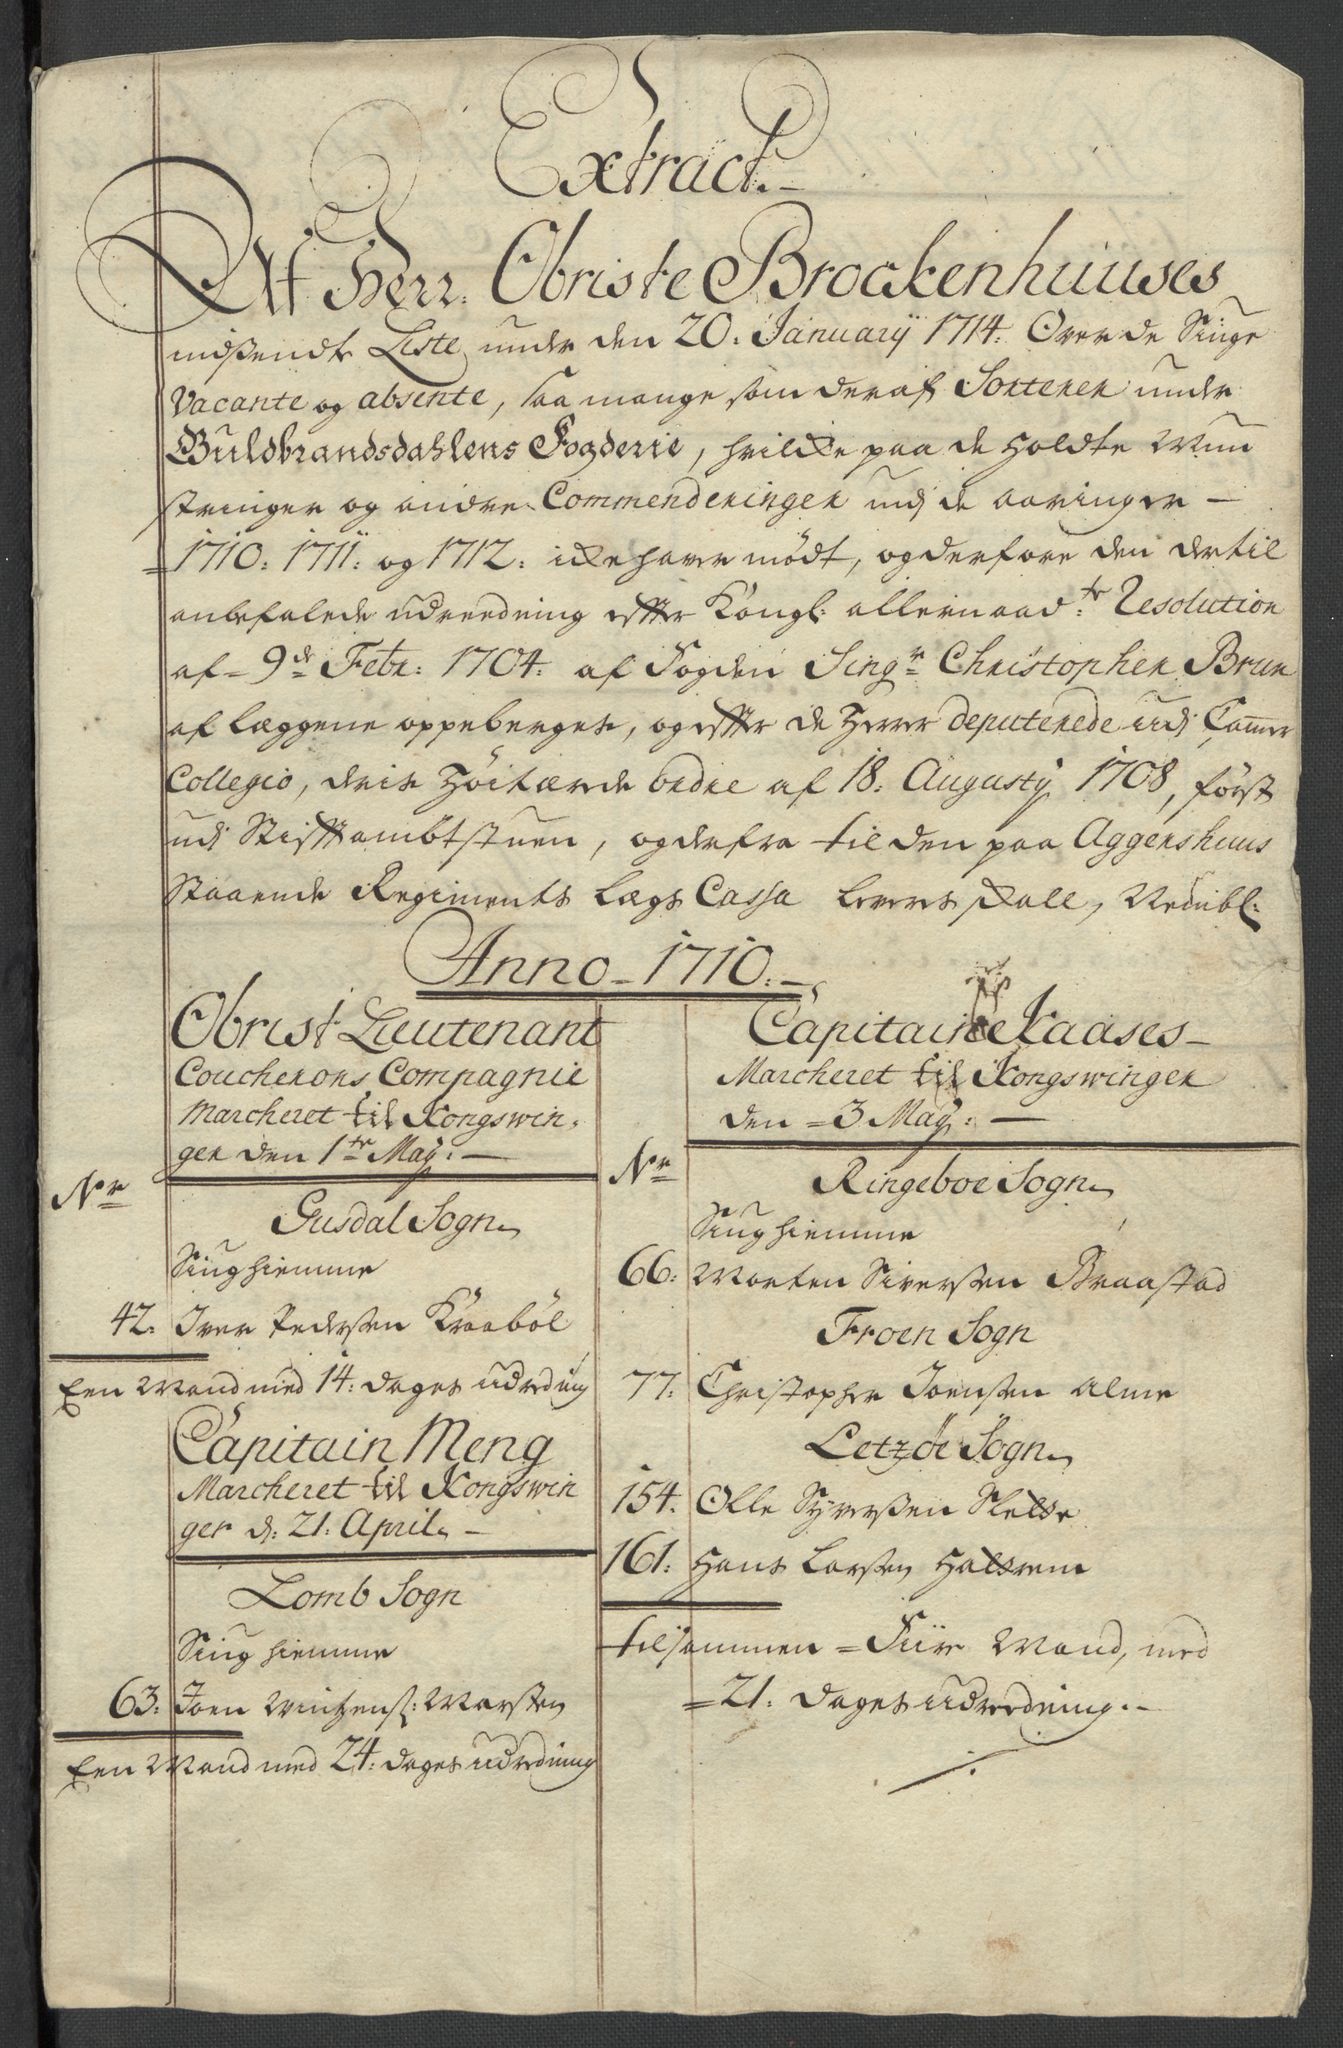 Extract
Af Herr: Obriste Brockenhuuses
indsendte Liste, under den 20: Januarÿ 1714. Over de Siuge
Vacante og absente, saa mange som deraf Sorterer under
Guldbrandsdahlens Fogderie, hvilcke paa de holdte Mun
stringer og andre Commenderinger udj de aaringer –
1710: 1711: og 1712: icke haver mødt, og derfore den dertil
anbefalede udreedning effter Kongl: allernaad:te Resolution
af 9de Febr: 1704. af Fogden Sing:r Christopher Brun
af læggene oppeberget, og effter de Herrer deputerede udj Cammer
Collegio, deris Høitærede ordre af 18. Augustÿ 1708, først
udj Stifftambtstuen, og derfra til den paa Aggershuus
Staaende Regiments Lægs Cassa levers skall, Nembl:
Anno 1710.
Obrist Lieutenant
Coucherons Compagnie
Marcheret til Kongswin-
ger den 1te Maÿ: –
Nr
Gusdal Sogn
Siug hiemme
42. Iver Pedersen Kraabøl
Een Mand med 14: dages udreding
Capitain Meng
Marcheret til Kongswin
ger d: 21: April –
Lomb Sogn
Siug hiemme
63: Joen
Een Mand med 24: dages udredning
Capitain Kaases –
Marcheret til Kongswinger
den 3 Maÿ: –
Nr
Ringeboe Sogn
Siug hiemme
66: Morten Siversen Braastad
Froen Sogn
77: Christopher Joensen Alme
Letzøe Sogn
154. Olle Syversen
161: Hans Larsen
tilsammen = Fiire Mand, med
21: dages udreedning. –